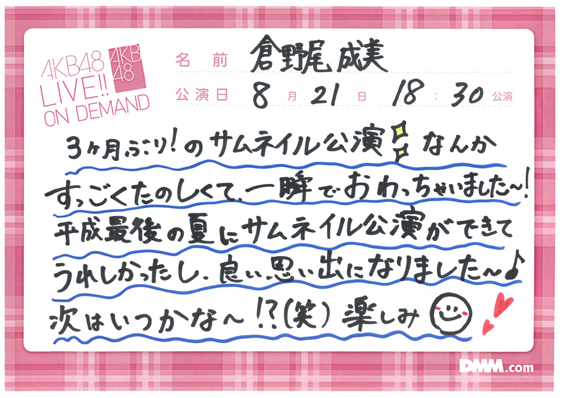 AKB48
LIVE!!
ON DEMAND
AKB
48
名前 倉野尾成美
公演日 8月21日 18:30公演
3ヶ月ぶり!のサムネイル公演なんか
すっごくたのしくて、一瞬でおわっちゃいました〜!
平成最後の夏にサムネイル公演ができて
うれしかったし、良い思い出になりました〜♪
次はいつかな〜!?(笑)楽しみ
DMM.com